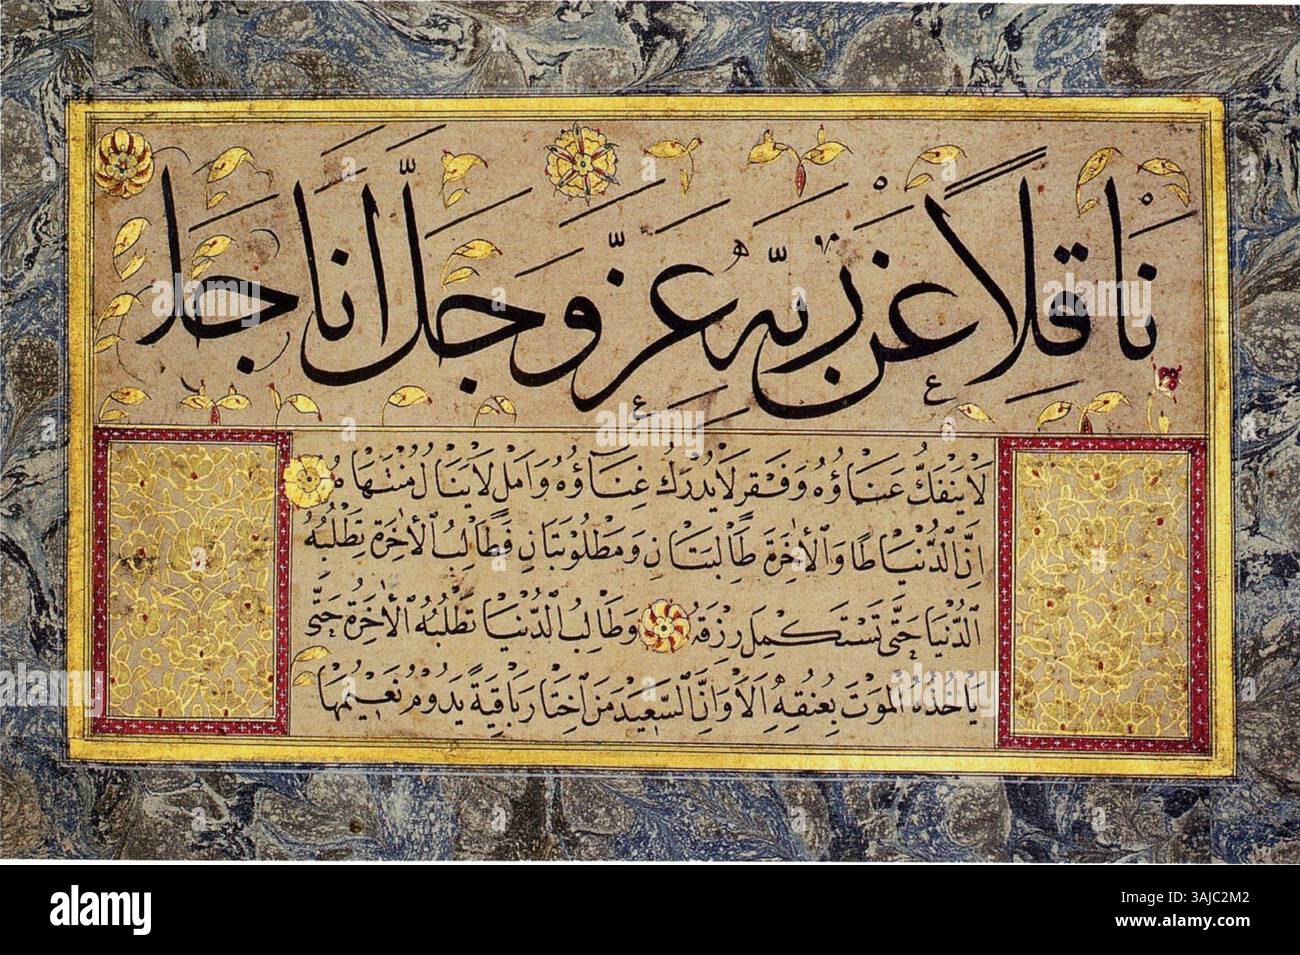 نَاقِلاً عَنْ رَبِّهِ عَزَّ وَجَلَّ اَنَا جَلِي
لَا يَنْفَكُّ عَنَاؤُهُ وَفَقْرٍ لَا يُدْرَكُ غِنَاؤُهُ وَاَمَلٍ لَا يَنَالُ مُنْتَهَاهُ
اِنَّ الدُّنْيَا طَا وَالْاٰخِرَةَ طَالِبَتَانِ وَمَطْلُوبَتَانِ فَطَالِبُ الْاٰخِرَةِ تَطْلُبُهُ
الدُّنْيَا حَتَّى تَسْتَكْمِلَ رِزْقَهُ وَطَالِبُ الدُّنْيَا تَطْلُبُهُ الْاٰخِرَةُ حَتَّى
يَاْخُذَهُ الْمَوْتَ بِعُنُقِهِ اَلَا وَاِنَّ السَّعِيدَ مَنِ اخْتَارَ بَاقِيَةً يَدُومُ نَعِيمُهَا
alamy
3AJC2M2
www.alamy.com